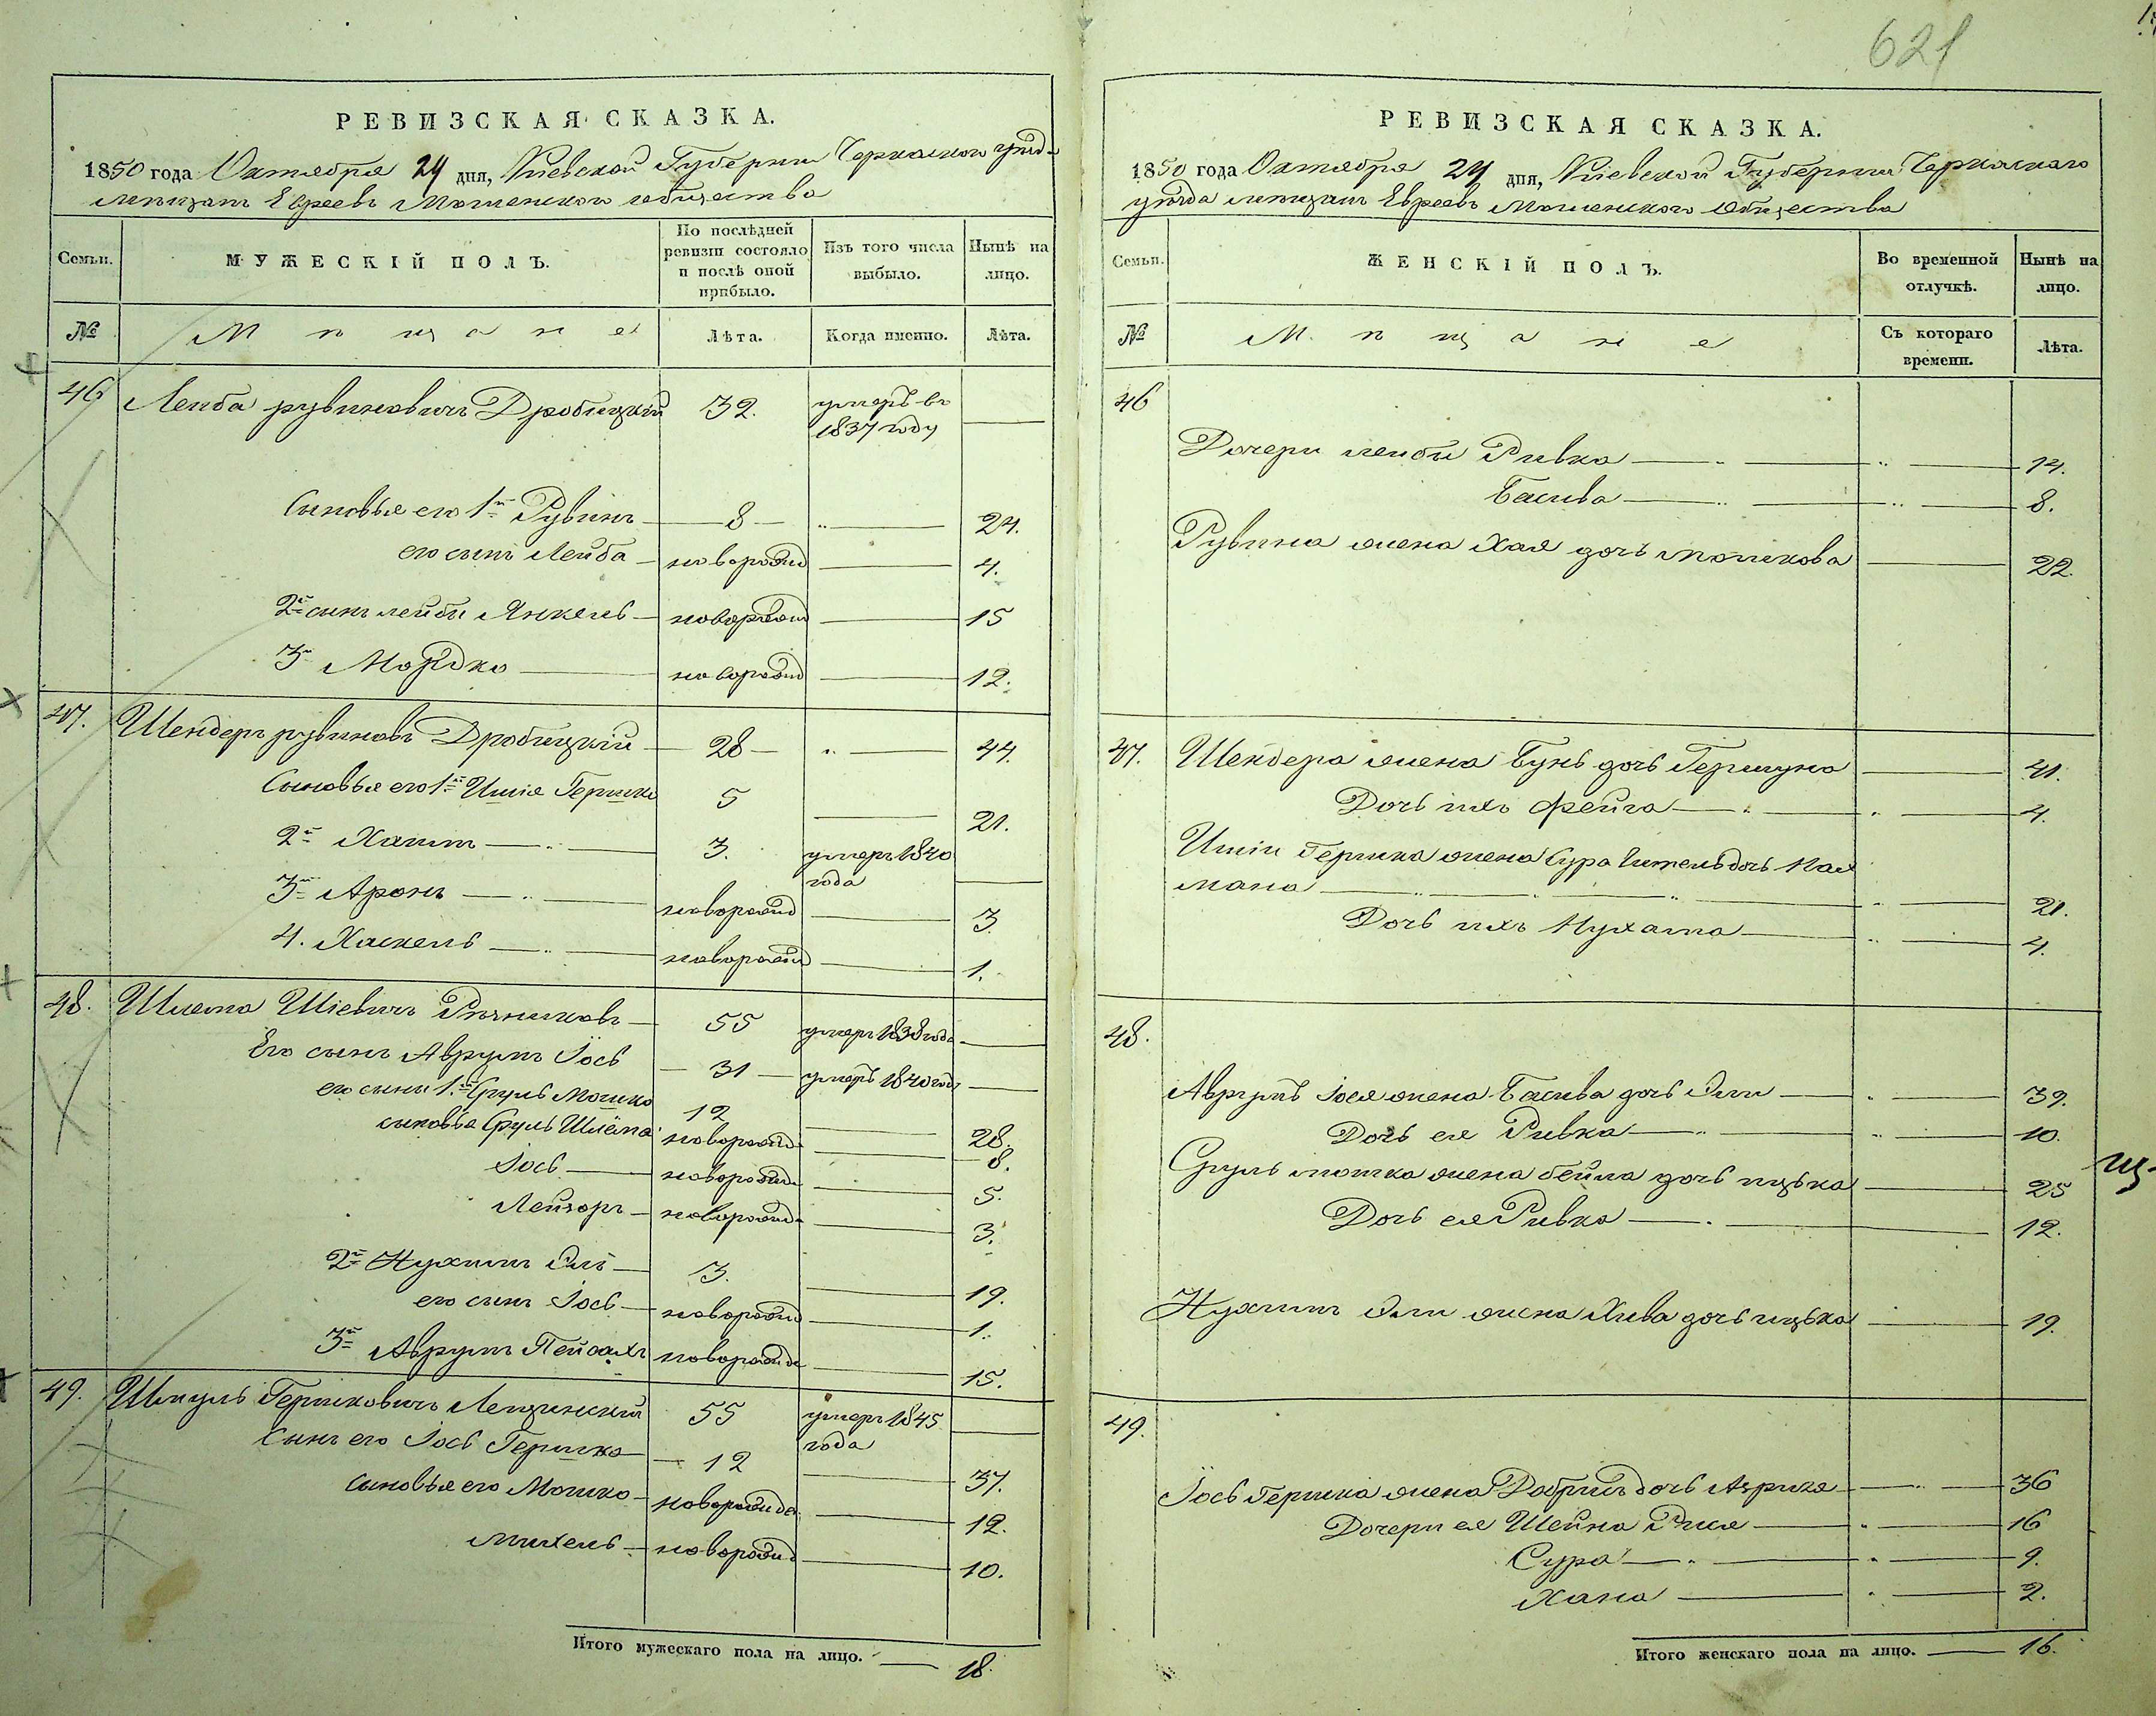 621
РЕВИЗСКАЯ СКАЗКА.
1850 года Октября 24 дня, Киевской Губернии Черкаского уезда
мещан Евреев Мошенского общества
Семьи.
МУЖЕСКІЙ ПОЛЪ.
По послѣдней ревизіи состояло и послѣ оной прибыло.
Изъ того числа выбыло.
Нынѣ на лицо.
№
Мѣщане
Лѣта.
Когда именно.
Лѣта.
46 Лейба рувиновичъ Дробицкій 32. умеръ въ 1837 году —
Сыновья его 1й Рувинъ — 8 — 24.
его сынъ Лейба — новорожд — 4.
2й сынъ лейбы Янкель — новорожд — 15
3й Мордко — новорожд — 12.
47. Шендеръ рувиновъ Дробицкій — 28 — 44.
Сыновья его 1й Ишія Гершко 5 — 21.
2й Хаимъ — 3. умеръ 1840 года —
3й Аронъ — новорожд — 3.
4. Хаскель — новорожд — 1.
48. Шлема Шіевичъ — 55 умеръ 1838 года —
Его сынъ Аврумъ Іось — 31 — умеръ 1840 года —
его сыны 1й Сруль Мошко 12 — 28.
сыновья Сруль Шлёма новорожд — 8.
Іось — новорожд — 5.
Лейзоръ — новорожд — 3.
2й Нухимъ Элі — 3. — 19.
его сынъ Іось — новорожд — 1.
3й Аврумъ Пейсахъ новорожд — 15.
49. Шмуль Гершковичъ Лещинскій 55 умеръ 1845 года —
Сынъ его Іось Гершко — 12 — 37.
сыновья его Мошко — новорожде — 12.
михель — новорожд — 10.
Итого мужескаго пола на лицо. — 18.
РЕВИЗСКАЯ СКАЗКА.
1850 года Октября 24 дня, Киевской Губернии Черкаскаго
уѣзда мещан Евреевъ Мошенского Общества
Семьи.
ЖЕНСКІЙ ПОЛЪ.
Во временной отлучкѣ.
Нынѣ на лицо.
№
Мѣщане
Съ котораго времени.
Лѣта.
46
Дочери лейбы Ривка — 14.
Басива — 8.
Рувина жена Хая дочь мошкова — 22.
47. Шендера жена Бунь дочь Гершуна — 41.
Дочь ихъ Фейга — 4.
Ишіи Гершка жена Сура дочь Нах
мана — 21.
Дочь ихъ Нухама — 4.
48.
Аврумъ Іося жена Басива дочь Эли — 39.
Дочь ея Ривка — 10.
Сруль мошка жена бейла дочь ицька — 25
Дочь ея Ривка — 12.
Нухимъ Эли жена Хива дочь ицька — 19.
49.
Іось Гершка жена Добришъ дочь — 36
Дочери ея Шейна — 16
Сура — 9.
Хана — 2.
Итого женскаго пола на лицо. — 16.